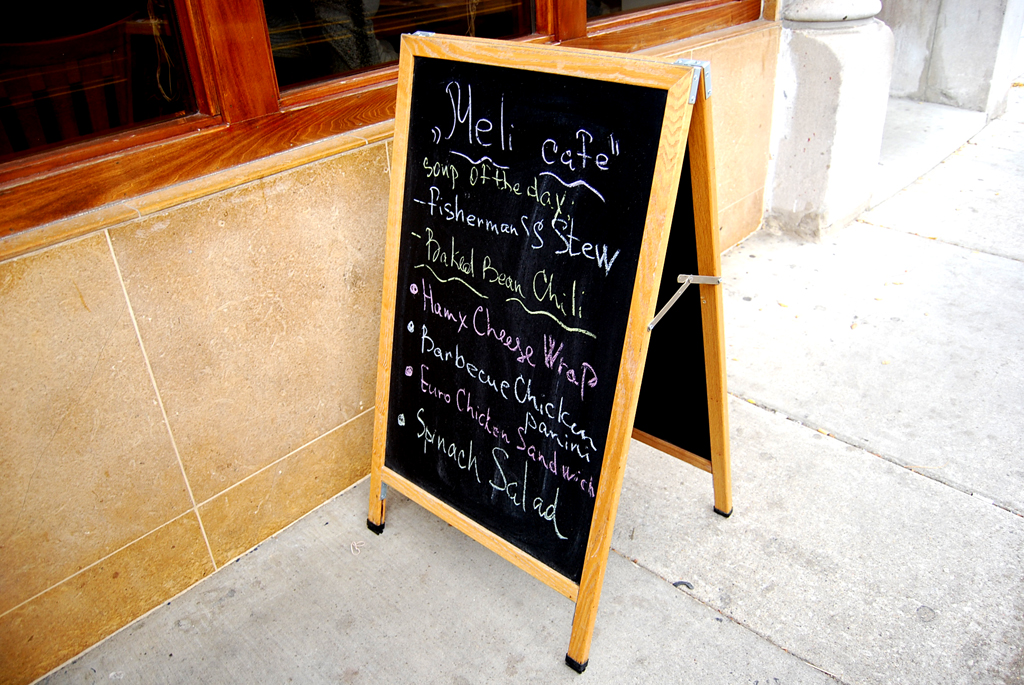 „Meli cafe"
soup of the day:
- fisherman's Stew
- Baked Bean Chili
• Ham x Cheese Wrap
• Barbecue Chicken
panini
• Euro Chicken Sandwich
• Spinach Salad